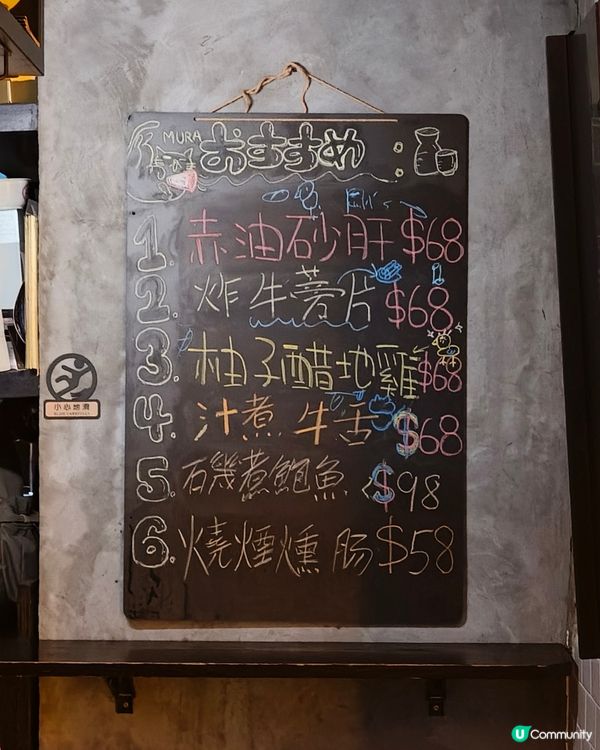 MURA おすすめ
1. 赤油砂肝 $68
2. 炸牛蒡片 $68
3. 柚子醋地雞 $68
4. 汁煮牛舌 $68
5. 石磯煮鮑魚 $98
6. 燒煙燻腸 $58
小心地滑
U Community